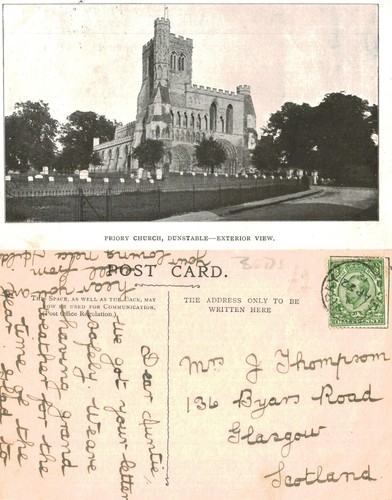 PRIORY CHURCH, DUNSTABLE—EXTERIOR VIEW.
POST CARD.
THIS SPACE, AS WELL AS THE BACK, MAY
NOW BE USED FOR COMMUNICATION.
(Post Office Regulation.)
THE ADDRESS ONLY TO BE
WRITTEN HERE
Dear Auntie,
we got your letter
safely. We are
having grand
weather for the
time of the
year
glad to
hear from you
your loving
Mrs J Thompson
136 Byars Road
Glasgow
Scotland